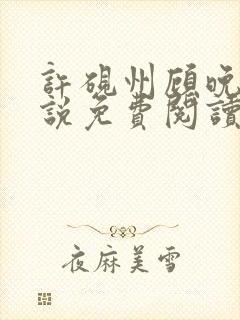 許硯州顾晚
說免費閱讀
夜麻美雪